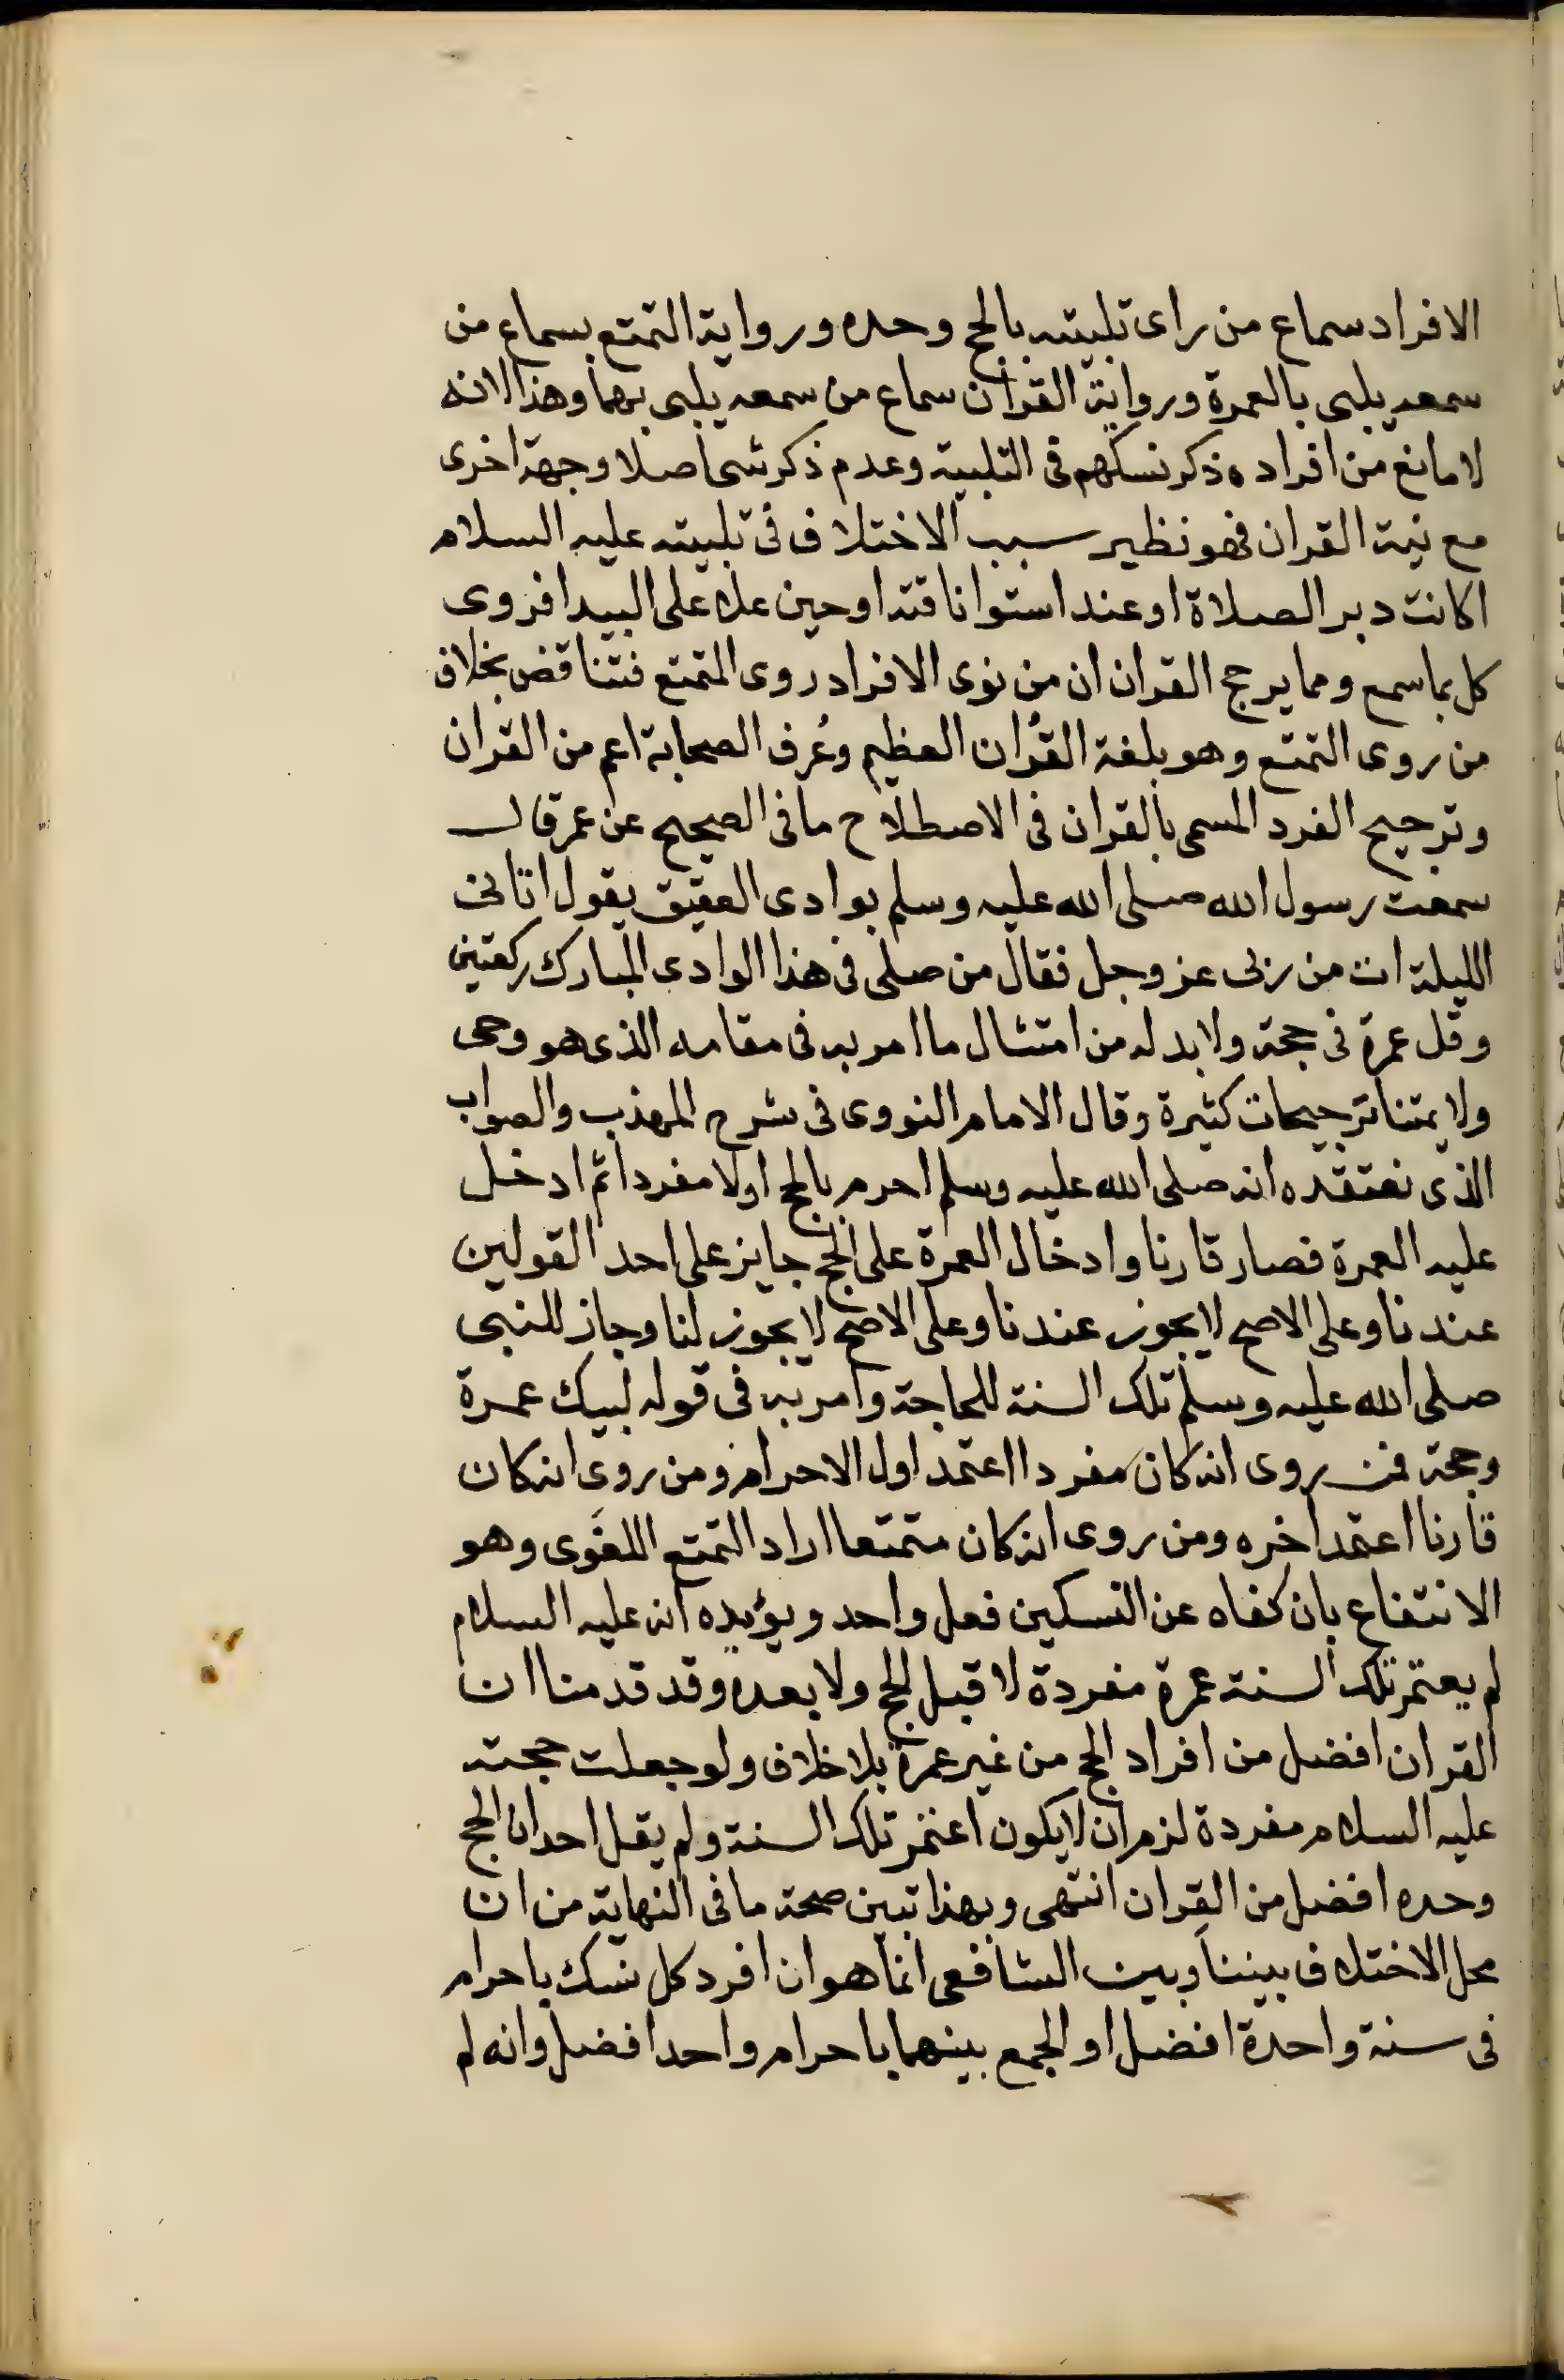 الافراد سماع من راى تلبيته بالحج وحده ورواية التمتع بسماع من
سمعه يلبى بالعمرة ورواية القران سماع من سمعه يلبى بهما وهذا لانه
لا مانع من افراد ه ذكر نسكهم فى التلبية وعدم ذكر شى اصلا وجهة اخرى
مع نية القران فهو نظير سبب الاختلاف فى تلبيته عليه السلام
اكانت دبر الصلاة او عند استوا ناقته او حين علاه على البيدا فروى
كل بما سمع ومما يرجح القران ان من نوى الافراد روى التمتع فتناقض بخلاف
من روى التمتع وهو بلغة القُران العظيم وعُرف الصحابة اعم من القران
وترجيح الفرد المسمى بالقران فى الاصطلاح ما فى الصحيح عن عمر قال
سمعت رسول الله صلى الله عليه وسلم بوادى العقيق يقول اتانى
الليلة ات من ربى عز وجل فقال من صلى فى هذا الوادى المبارك ركعتين
وقل عمرة فى حجة ولا بد له من امتثال ما امر به فى مقامه الذى هو وحى
ولا يمتنا ترجيحات كثيرة وقال الامام النووى فى شرح المهذب والصواب
الذى نعتقده انه صلى الله عليه وسلم احرم بالحج اولا مفردا ثم ادخل
عليه العمرة فصار قارنا وادخال العمرة على الحج جايز على احد القولين
عندنا وعلى الاصح لا يجوز عندنا وعلى الاصح لا يجوز لنا وجاز للنبى
صلى الله عليه وسلم تلك السنة للحاجة وامر به فى قوله لبيك عمرة
وحجة فمن روى انه كان مفردا اعتمد اول الاحرام ومن روى انه كان
قارنا اعتمد اخره ومن روى انه كان متمتعا اراد التمتع اللغوى وهو
الانتفاع بان كفاه عن النسكين فعل واحد ويؤيده انه عليه السلام
لم يعتمر تلك السنة عمرة مفردة لا قبل الحج ولا بعده وقد قدمنا ان
القران افضل من افراد الحج من غير عمرة بلا خلاف ولو جعلت حجته
عليه السلام مفردة لزم ان لا يكون اعتمر تلك السنة ولم يقل احد ان الحج
وحده افضل من القِران انتهى وبهذا تبين صحة ما فى النهاية من ان
محل الاختلاف بيننا وبين الشافعى انما هو ان افرد كل نسك باحرام
فى سنة واحدة افضل او الجمع بينهما باحرام واحد افضل وانه لم